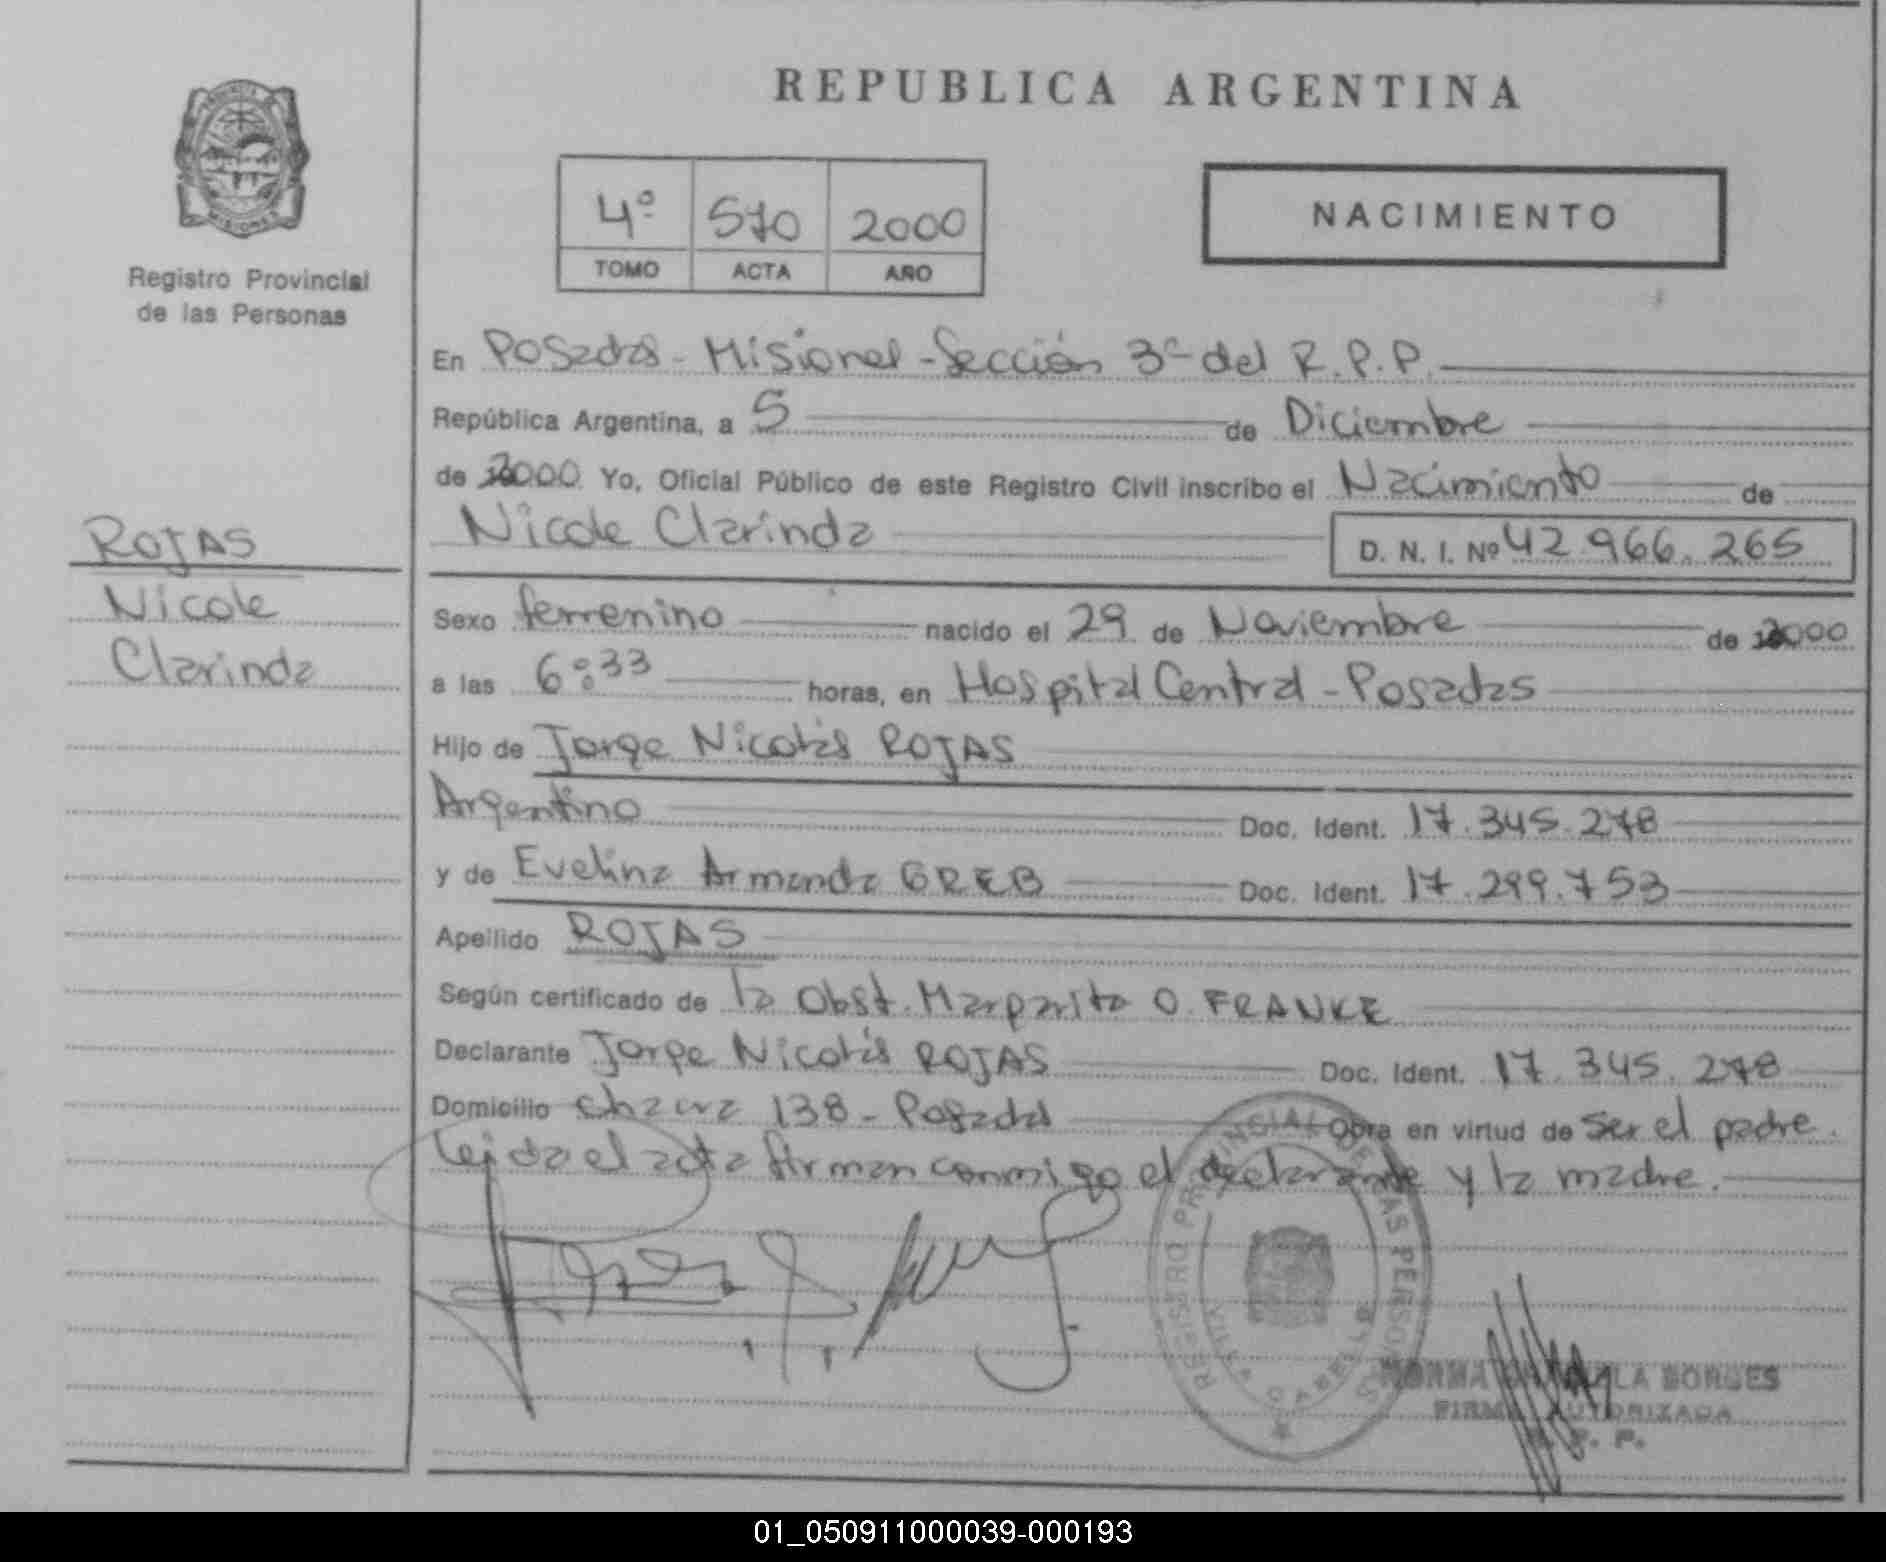 REPUBLICA ARGENTINA
4º 570 2000
TOMO ACTA AÑO
NACIMIENTO
PROVINCIA DE
MISIONES
Registro Provincial
de las Personas
ROJAS
Nicole
Clarinda
En Posadas - Misiones - Sección 3ª del R.P.P.
República Argentina, a 5 de Diciembre
de 2000 Yo, Oficial Público de este Registro Civil inscribo el Nacimiento de
Nicole Clarinda D. N. I. Nº 42.966.265
Sexo femenino nacido el 29 de Noviembre de 2000
a las 6:33 horas, en Hospital Central - Posadas
Hijo de Jorge Nicolás ROJAS
Argentino Doc. Ident. 17.345.278
y de Evelina Armanda GREB Doc. Ident. 17.299.753
Apellido ROJAS
Según certificado de la Obst. Margarita O. FRANKE
Declarante Jorge Nicolás ROJAS Doc. Ident. 17.345.278
Domicilio 138 - Posadas Obra en virtud de ser el padre.
Leída el acta firman conmigo el declarante y la madre.
REGISTRO PROVINCIAL DE LAS PERSONAS
VILLA CABELLO
NORMA BORGES
FIRMA AUTORIZADA
R. P. P.
01_050911000039-000193